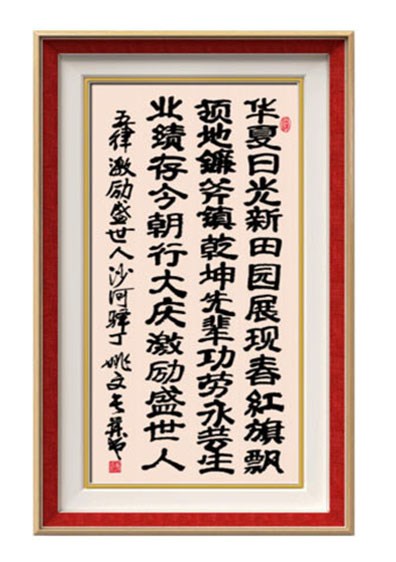 华夏日光新田园展现春紅旗飘
领地鐮斧鎮乾坤先辈功劳永生
业績存今朝行大庆激励盛世人
五律激励盛世人沙河驿丁姚文